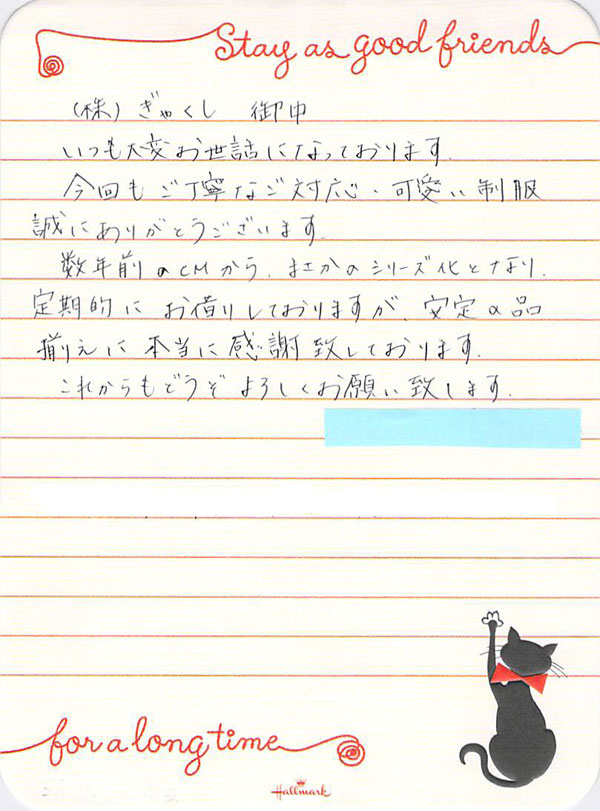 Stay as good friends
(株)ぎゃくし 御中
いつも大変お世話になっております.
今回もご丁寧なご対応・可愛い制服
誠にありがとうございます.
数年前のCMから、まさかのシリーズ化となり、
定期的にお借りしておりますが、安定の品
揃えに本当に感謝致しております.
これからもどうぞよろしくお願い致します.
for a long time
Hallmark